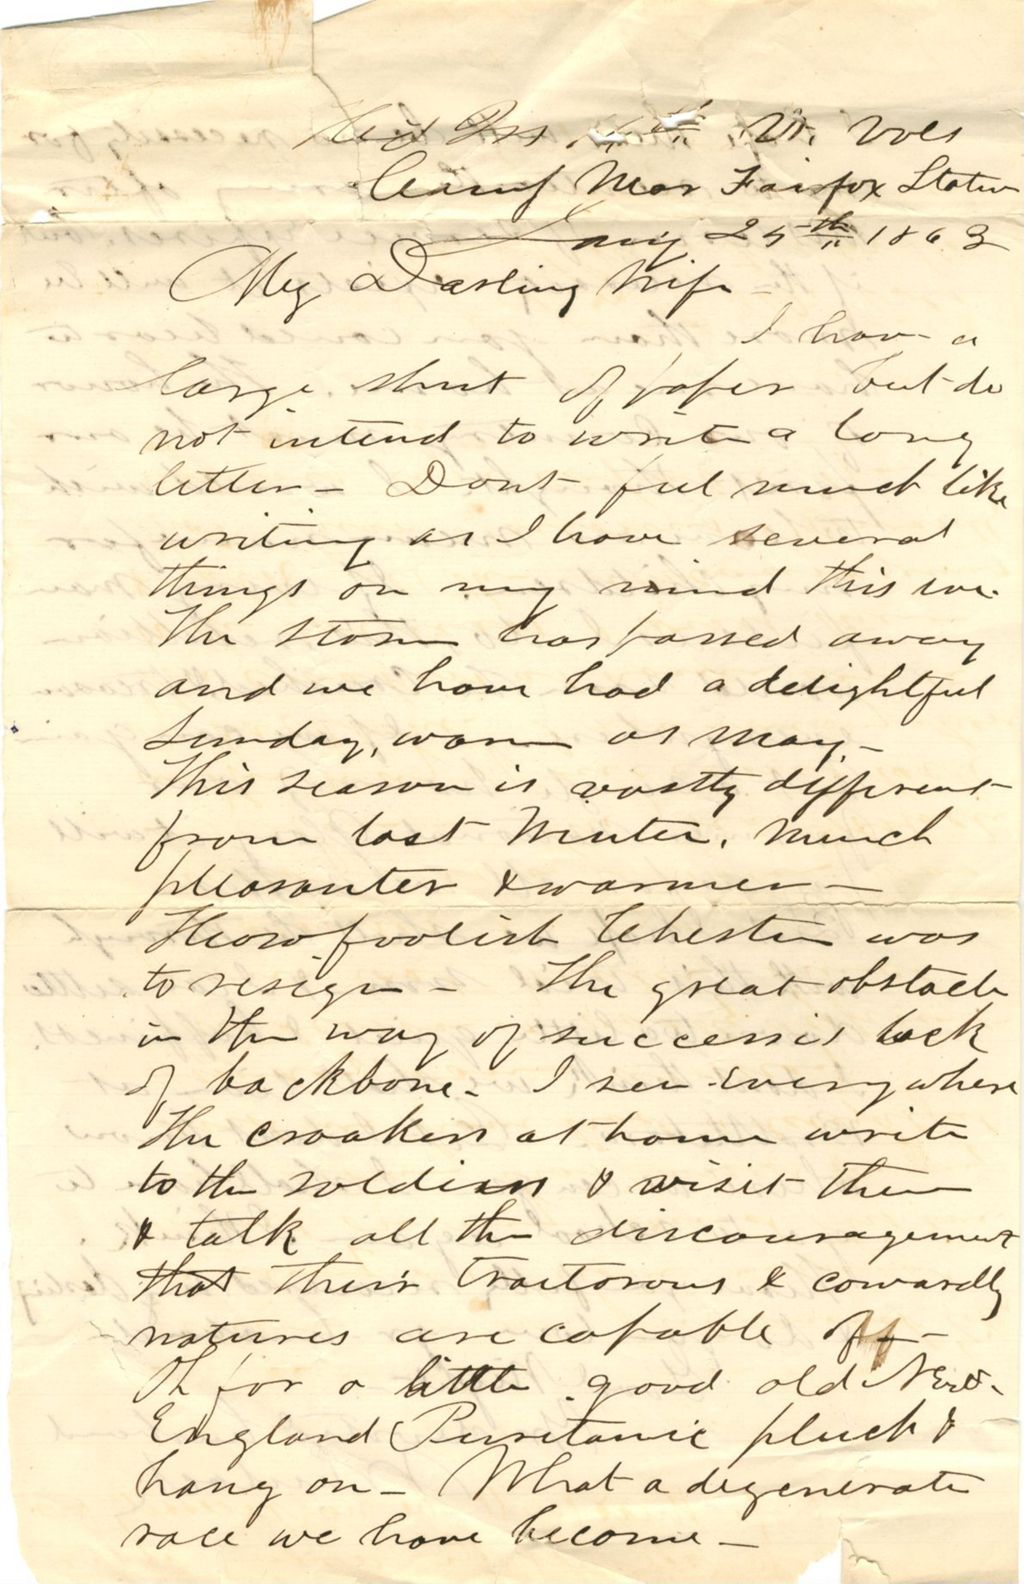 Head Qrs Vt. Vols
Camp Near Fairfax Station
Jany 25th 1863
My Darling Wife -
I have a
large sheet of paper but do
not intend to write a long
letter - Dont feel much like
writing as I have several
things on my mind this eve.
The storm has passed away
and we have had a delightful
Sunday, warm as May. -
This season is vastly different
from last Winter. Much
pleasanter & warmer -
How foolish Chester was
to resign - The great obstacle
in the way of success is lack
of backbone - I see everywhere
the croakers at home write
to the soldiers & visit them
& talk all the discouragement
that their traitorous & cowardly
natures are capable off -
Oh for a little good old New-
England Puritanic pluck &
hang on - What a degenerate
race we have become -